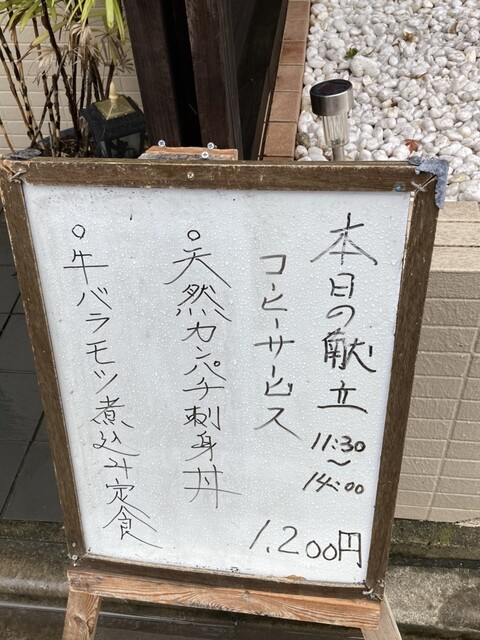 本日の献立
11:30
〜
14:00
コーヒーサービス
1,200円
○天然カンパチ刺身丼
○牛バラモツ煮込み定食